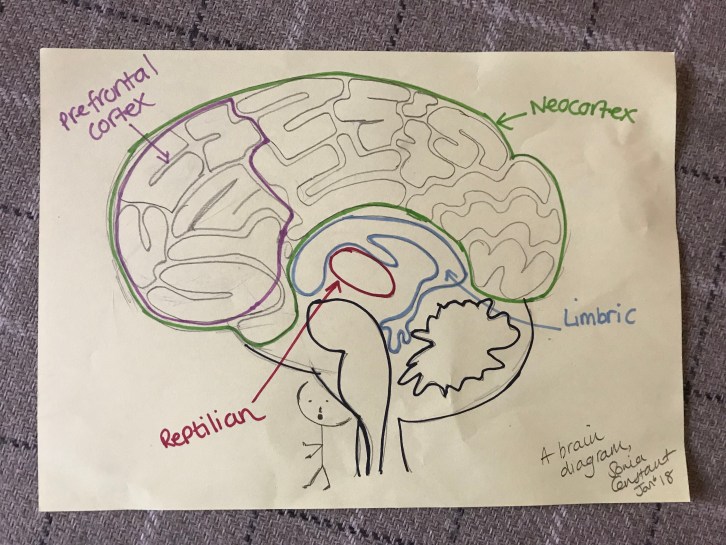 Prefrontal
cortex
Neocortex
Limbric
Reptilian
A brain
diagram,
Sonia
Constant
Jan '18